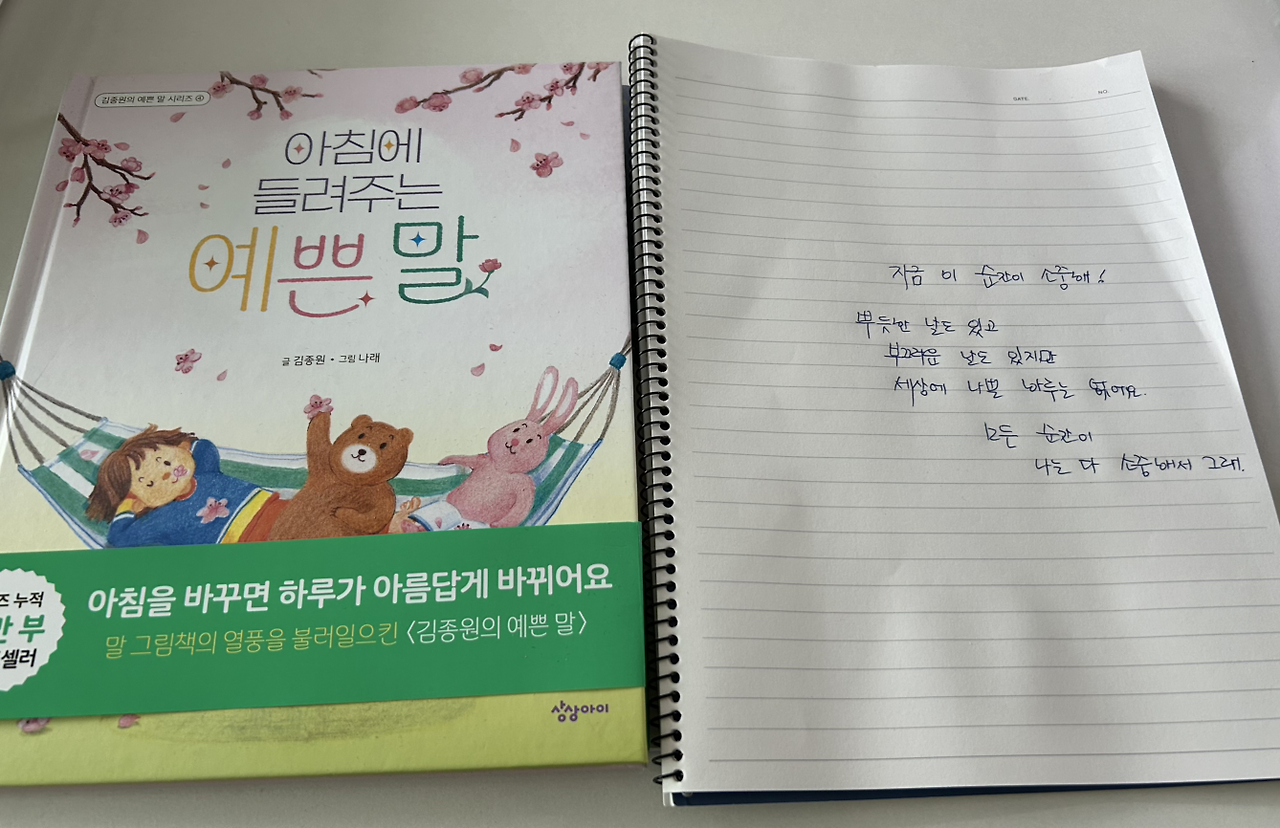 김종원의 예쁜 말 시리즈 ④
아침에
들려주는
예쁜 말
글 김종원 • 그림 나래
즈 누적
만 부
셀러
아침을 바꾸면 하루가 아름답게 바뀌어요
말 그림책의 열풍을 불러일으킨 〈김종원의 예쁜 말〉
상상아이
DATE.
NO.
지금 이 순간이 소중해!
뿌듯한 날도 있고
부끄러운 날도 있지만
세상에 나쁠 하루는 없어요.
모든 순간이
나는 다 소중해서 그래.